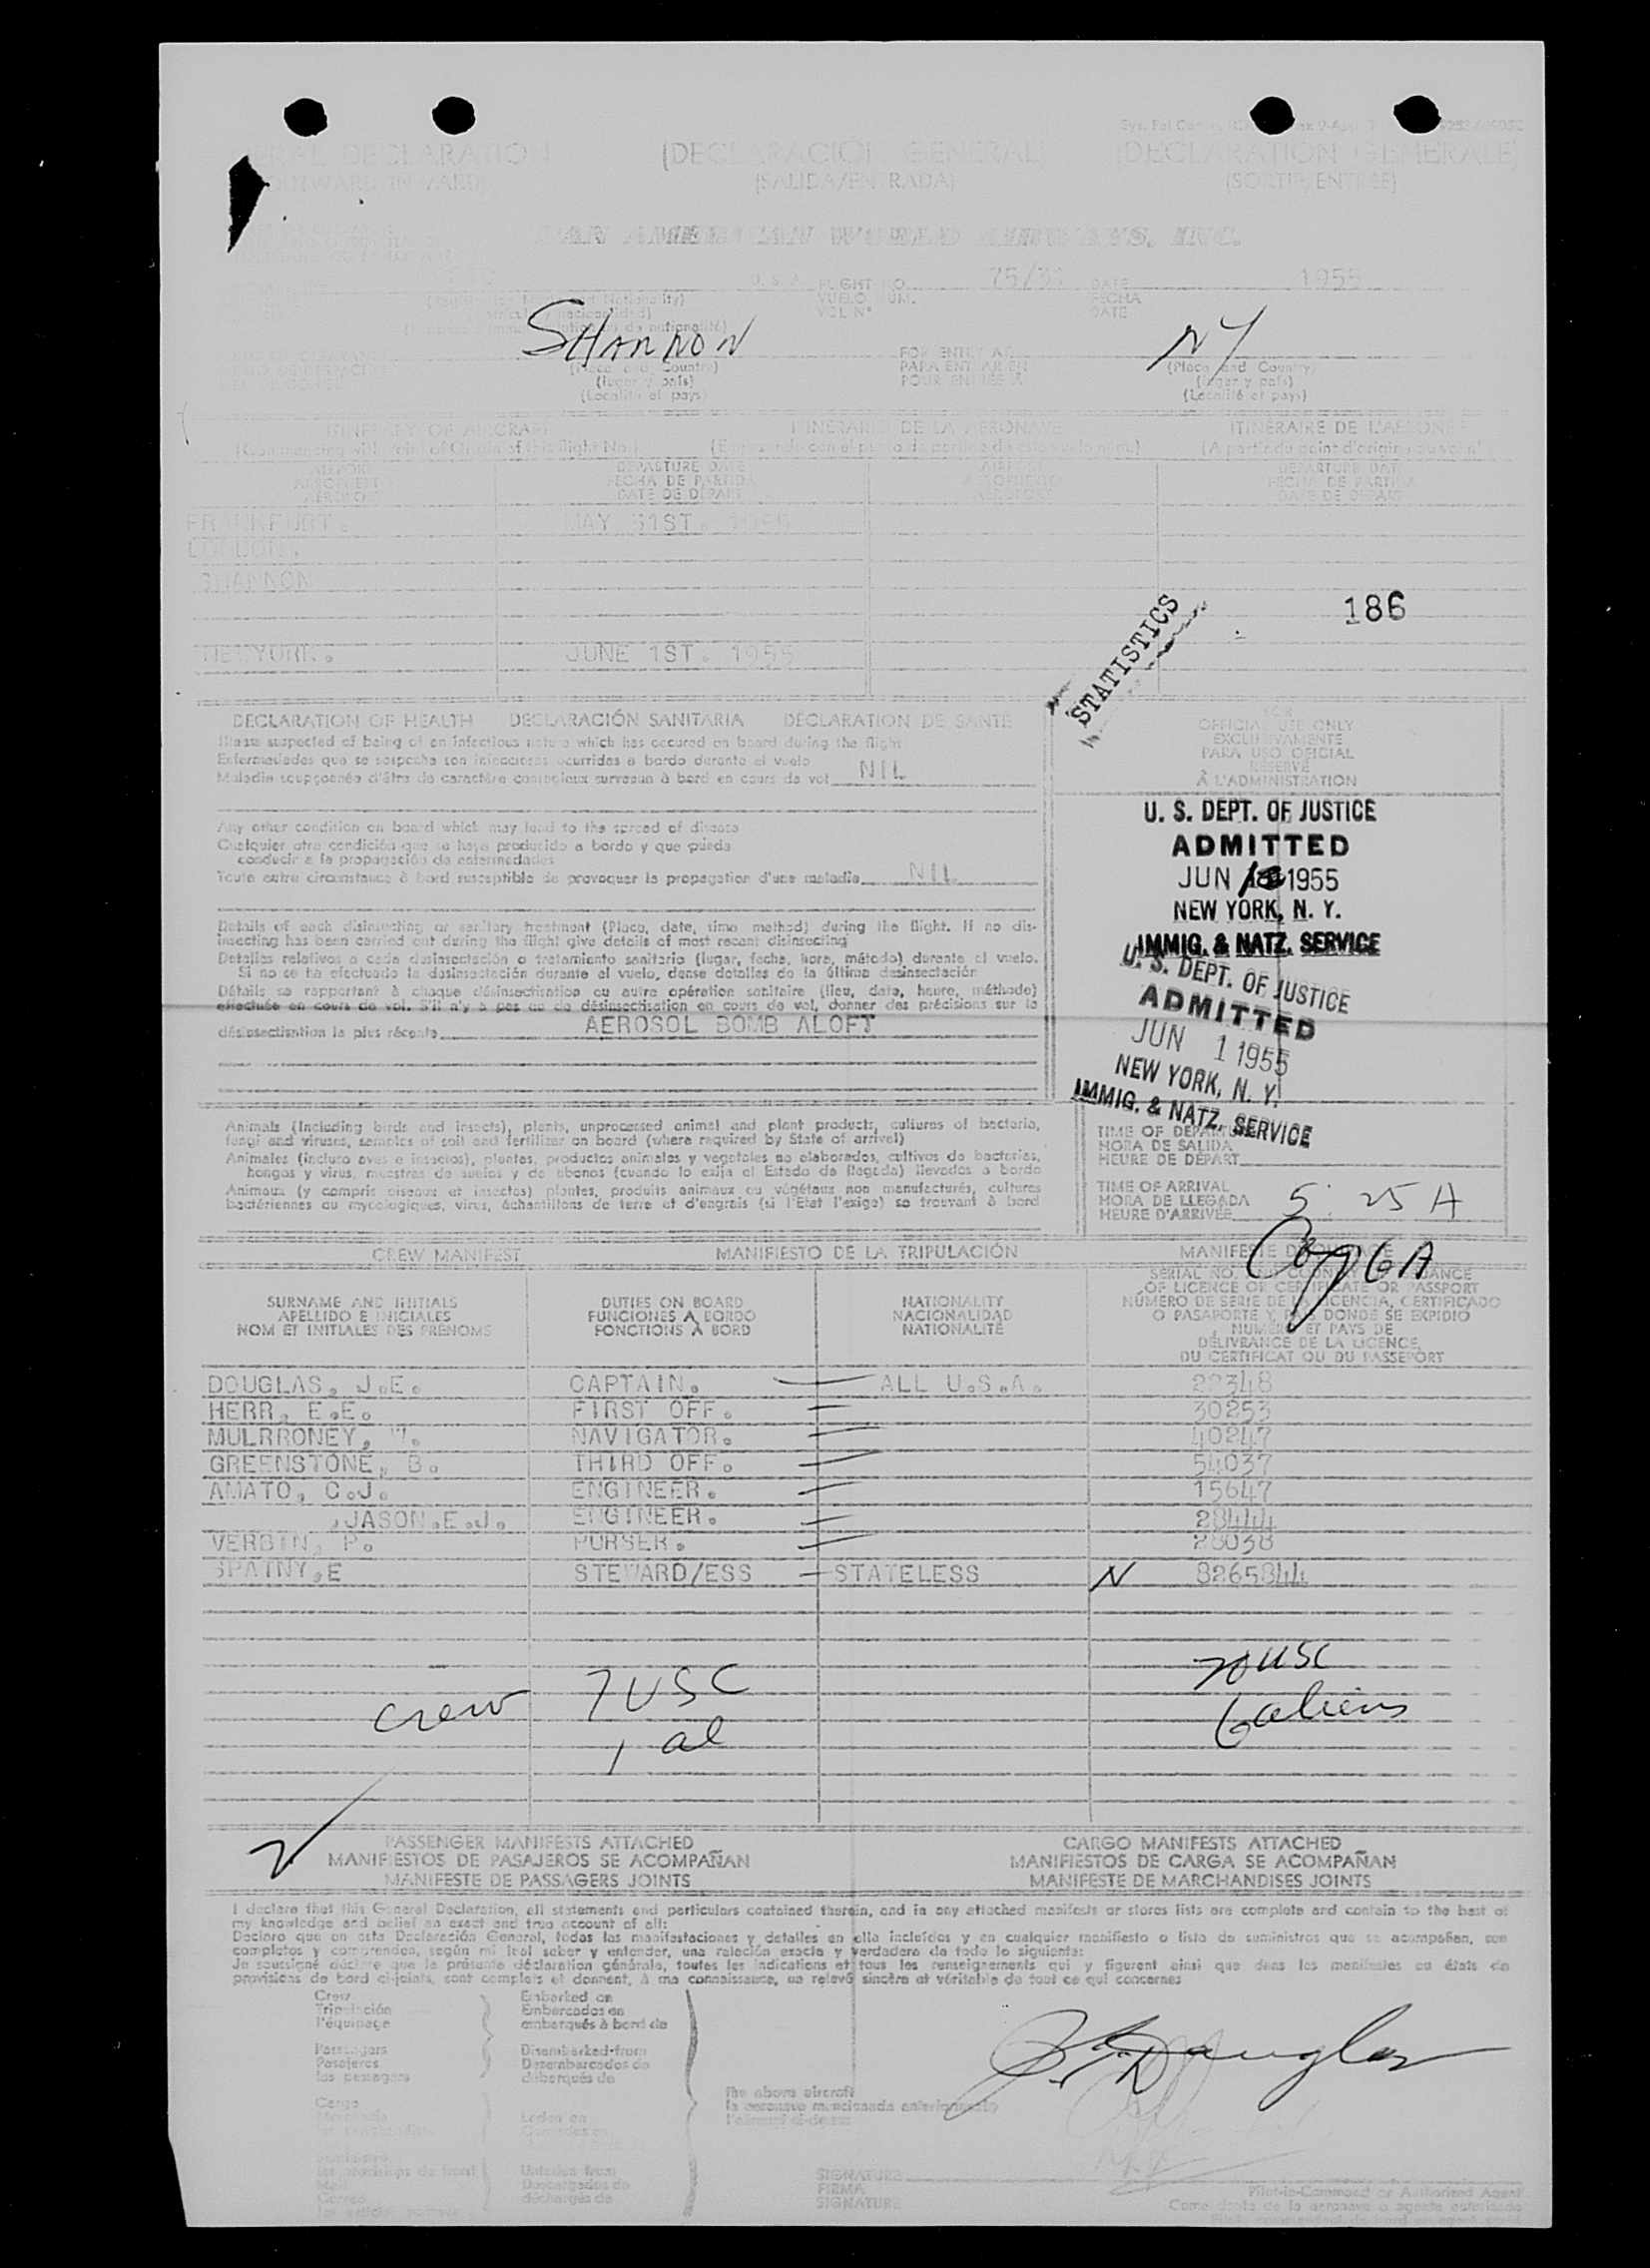 (DECLARACIÓN GENERAL) (DECLARATION GENERALE)
(SALIDA/ENTRADA) (SORTIE/ENTRÉE)
PAN AMERICAN WORLD AIRWAYS, INC.
U. S. A. FLIGHT NO. 75/31 DATE 1955
VUELO NUM. FECHA
VOL Nº DATE
SHANNON NY
(Place and Country) (Place and Country)
(lugar y país) (lugar y país)
(Localité et pays) (Localité et pays)
ITINERARY OF AIRCRAFT ITINERARIO DE LA AERONAVE ITINÉRAIRE DE L'AÉRONEF
DEPARTURE DATE DEPARTURE DATE
FECHA DE PARTIDA FECHA DE PARTIDA
DATE DE DÉPART DATE DE DÉPART
FRANKFURT. MAY 31ST. 1955
LONDON.
SHANNON
186
STATISTICS
NEW YORK. JUNE 1ST. 1955
DECLARATION OF HEALTH DECLARACIÓN SANITARIA DECLARATION DE SANTE
Illness suspected of being of an infectious nature which has occured on board during the flight
Enfermedades que se sospecha son infecciosas ocurridas a bordo durante el vuelo
Maladie soupçonnée d'être de caractère contagieux survenue à bord en cours de vol NIL
FOR
OFFICIAL USE ONLY
EXCLUSIVAMENTE
PARA USO OFICIAL
RÉSERVÉ
À L'ADMINISTRATION
Any other condition on board which may lead to the spread of disease
Cualquier otra condición que se haya producido a bordo y que pueda
conducir a la propagación de enfermedades
Toute autre circonstance à bord susceptible de provoquer la propagation d'une maladie NIL
Details of each disinsecting or sanitary treatment (Place, date, time method) during the flight. If no dis-
insecting has been carried out during the flight give details of most recent disinsecting
Detalles relativos a cada desinsectación o tratamiento sanitario (lugar, fecha, hora, método) durante el vuelo.
Si no se ha efectuado la desinsectación durante el vuelo, dense detalles de la última desinsectación
Détails se rapportant à chaque désinsectisation ou autre opération sanitaire (lieu, date, heure, méthode)
effectuée en cours de vol. S'il n'y a pas eu de désinsectisation en cours de vol, donner des précisions sur la
désinsectisation la plus récente AEROSOL BOMB ALOFT
U. S. DEPT. OF JUSTICE
ADMITTED
JUN 1955
NEW YORK, N. Y.
IMMIG. & NATZ. SERVICE
U. S. DEPT. OF JUSTICE
ADMITTED
JUN 1 1955
NEW YORK, N. Y.
IMMIG. & NATZ. SERVICE
Animals (Including birds and insects), plants, unprocessed animal and plant products, cultures of bacteria,
fungi and viruses, samples of soil and fertilizer on board (where required by State of arrival)
Animales (incluso aves e insectos), plantas, productos animales y vegetales no elaborados, cultivos de bacterias,
hongos y virus, muestras de suelos y de abonos (cuando lo exija el Estado de llegada) llevados a bordo
Animaux (y compris oiseaux et insectes) plantes, produits animaux ou végétaux non manufacturés, cultures
bactériennes ou mycologiques, virus, échantillons de terre et d'engrais (si l'Etat l'exige) se trouvant à bord
TIME OF DEPARTURE
HORA DE SALIDA
HEURE DE DÉPART
TIME OF ARRIVAL
HORA DE LLEGADA
HEURE D'ARRIVÉE 5:25 A
CREW MANIFEST MANIFIESTO DE LA TRIPULACIÓN MANIFESTE
SURNAME AND INITIALS DUTIES ON BOARD NATIONALITY
APELLIDO E INICIALES FUNCIONES A BORDO NACIONALIDAD
NOM ET INITIALES DES PRÉNOMS FONCTIONS À BORD NATIONALITÉ
SERIAL NO.
OF LICENCE OR CERTIFICATE OR PASSPORT
NÚMERO DE SERIE DE LA LICENCIA, CERTIFICADO
O PASAPORTE Y PAIS DONDE SE EXPIDIO
NUMÉRO ET PAYS DE
DÉLIVRANCE DE LA LICENCE,
DU CERTIFICAT OU DU PASSEPORT
DOUGLAS, J.E. CAPTAIN. ALL U.S.A. 22348
HERR, E.E. FIRST OFF. 30253
MULRRONEY, NAVIGATOR. 40247
GREENSTONE, B. THIRD OFF. 54037
AMATO, C.J. ENGINEER. 15647
,JASON.E.J. ENGINEER. 28444
VERBIN, P. PURSER. 28038
SPATNY.E STEWARD/ESS STATELESS N 8265844
crew 7 USC 70 USC
1 al 6 aliens
PASSENGER MANIFESTS ATTACHED CARGO MANIFESTS ATTACHED
MANIFIESTOS DE PASAJEROS SE ACOMPAÑAN MANIFIESTOS DE CARGA SE ACOMPAÑAN
MANIFESTE DE PASSAGERS JOINTS MANIFESTE DE MARCHANDISES JOINTS
I declare that this General Declaration, all statements and particulars contained therein, and in any attached manifests or stores lists are complete and contain to the best of
my knowledge and belief an exact and true account of all:
Declaro que en esta Declaración General, todas las manifestaciones y detalles en ella incluidos y en cualquier manifiesto o lista de suministros que se acompañen, son
completos y comprenden, según mi leal saber y entender, una relación exacta y verdadera de todo lo siguiente:
Je soussigné déclare que la présente déclaration générale, toutes les indications et tous les renseignements qui y figurent ainsi que dans les manifestes ou états de
provisions de bord ci-joints, sont complets et donnent, à ma connaissance, un relevé sincère et véritable de tout ce qui concerne:
Crew Embarked on
Tripulación Embarcados en
l'équipage embarqués à bord de
Passengers Disembarked-from
Pasajeros Desembarcados de
les passagers débarqués de
The above aircraft
la aeronave mencionada anteriormente
Cargo
J.E. Douglas
SIGNATURE
FIRMA
SIGNATURE
Pilot-in-Command or Authorized Agent